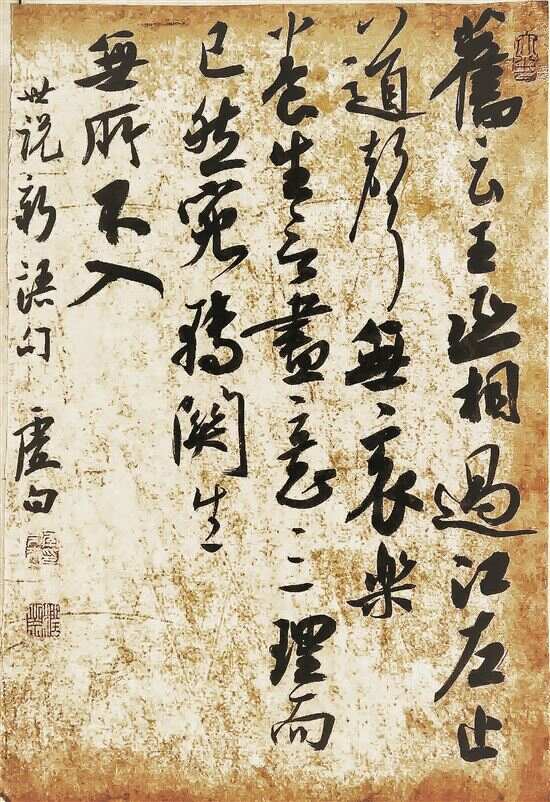 舊云王丞相過江左止
道聲無哀樂
養生言盡意三理而
已然宛轉關生
無所不入
世说新語句 虚白